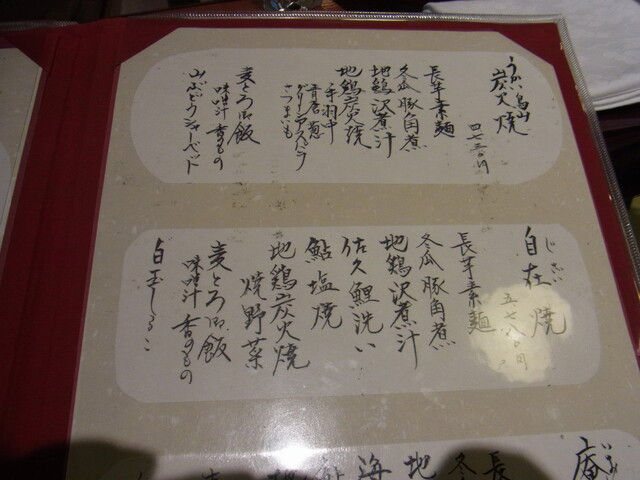 うかい鳥山
炭火焼
四七三〇円
長芋素麺
冬瓜 豚角煮
地鶏沢煮汁
地鶏炭火焼
手羽中
青唐 葱
グリーンアスパラ
さつまいも
麦とろ御飯
味噌汁 香のもの
山ぶどうシャーベット
じざい
自在焼
五七八〇円
長芋素麺
冬瓜 豚角煮
地鶏沢煮汁
佐久鯉洗い
鮎塩焼
地鶏炭火焼
焼野菜
麦とろ御飯
味噌汁 香のもの
白玉しるこ
庵
長
冬
地
海
鮎